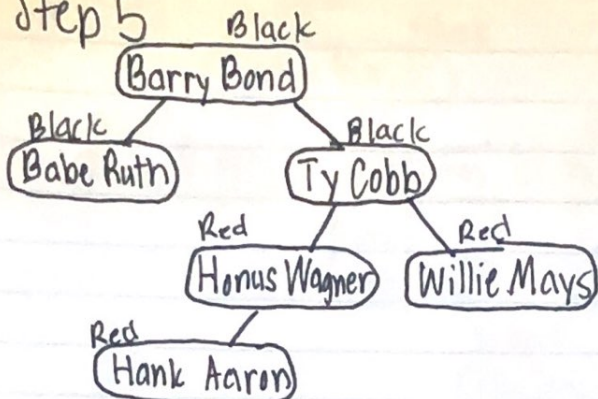 Step 5
Black
Barry Bond
Black
Black
Babe Ruth
Ty Cobb
Red
Red
Honus Wagner
Willie Mays
Red
Hank Aaron